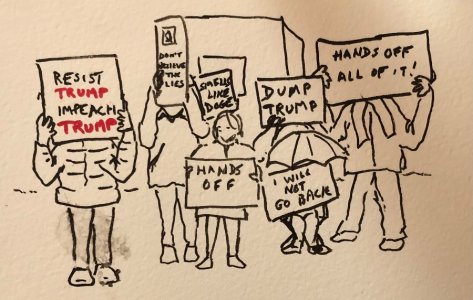 RESIST
TRUMP
IMPEACH
TRUMP
DON'T
BELIEVE
THE
LIES
SMELLS
LIKE
DOGE
DUMP
TRUMP
HANDS OFF
ALL OF IT!
HANDS
OFF
I WILL
NOT
GO BACK